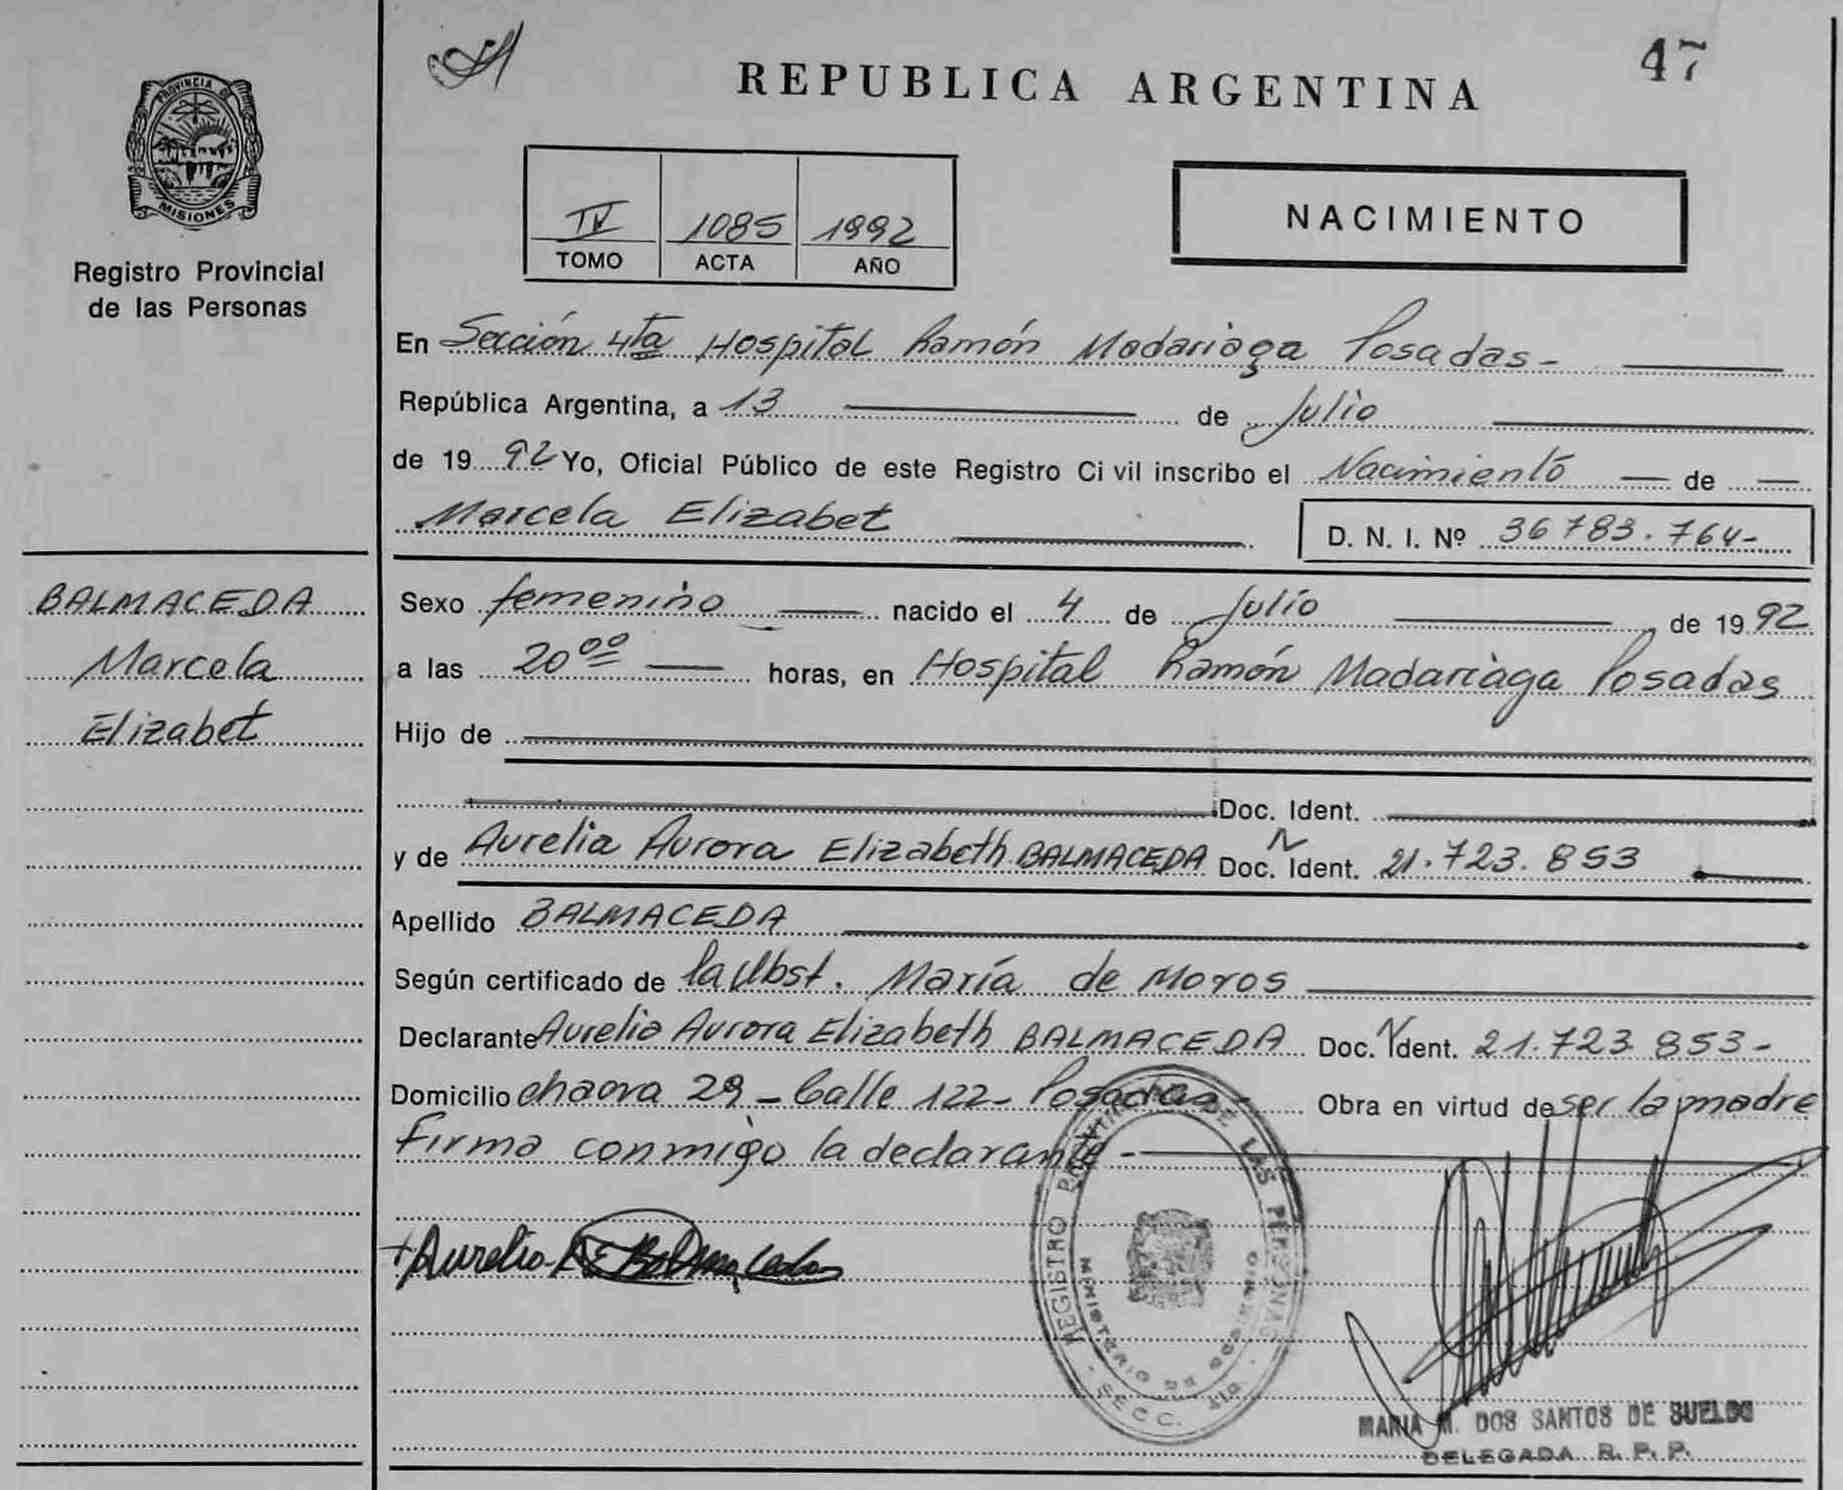 47
REPUBLICA ARGENTINA
PROVINCIA DE
MISIONES
Registro Provincial
de las Personas
IV 1085 1992
TOMO ACTA AÑO
NACIMIENTO
En Sección 4ta Hospital Ramón Madariaga Posadas-
República Argentina, a 13 de Julio
de 1992 Yo, Oficial Público de este Registro Civil inscribo el Nacimiento de
Marcela Elizabet
D. N. I. Nº 36783.764-
BALMACEDA
Marcela
Elizabet
Sexo femenino nacido el 4 de Julio de 1992
a las 20⁰⁰ horas, en Hospital Ramón Madariaga Posadas
Hijo de
Doc. Ident.
y de Aurelia Aurora Elizabeth BALMACEDA Doc. N Ident. 21.723.853
Apellido BALMACEDA
Según certificado de la Obst. María de Moros
Declarante Aurelia Aurora Elizabeth BALMACEDA Doc. N Ident. 21.723.853-
Domicilio chacra 29 - Calle 122 - Posadas - Obra en virtud de ser la madre
firma conmigo la declarante -
Aurelia
REGISTRO PROVINCIAL DE LAS PERSONAS
MINISTERIO DE GOBIERNO
SECC. 4ta
MARIA M. DOS SANTOS DE SUELDO
DELEGADA R. P. P.